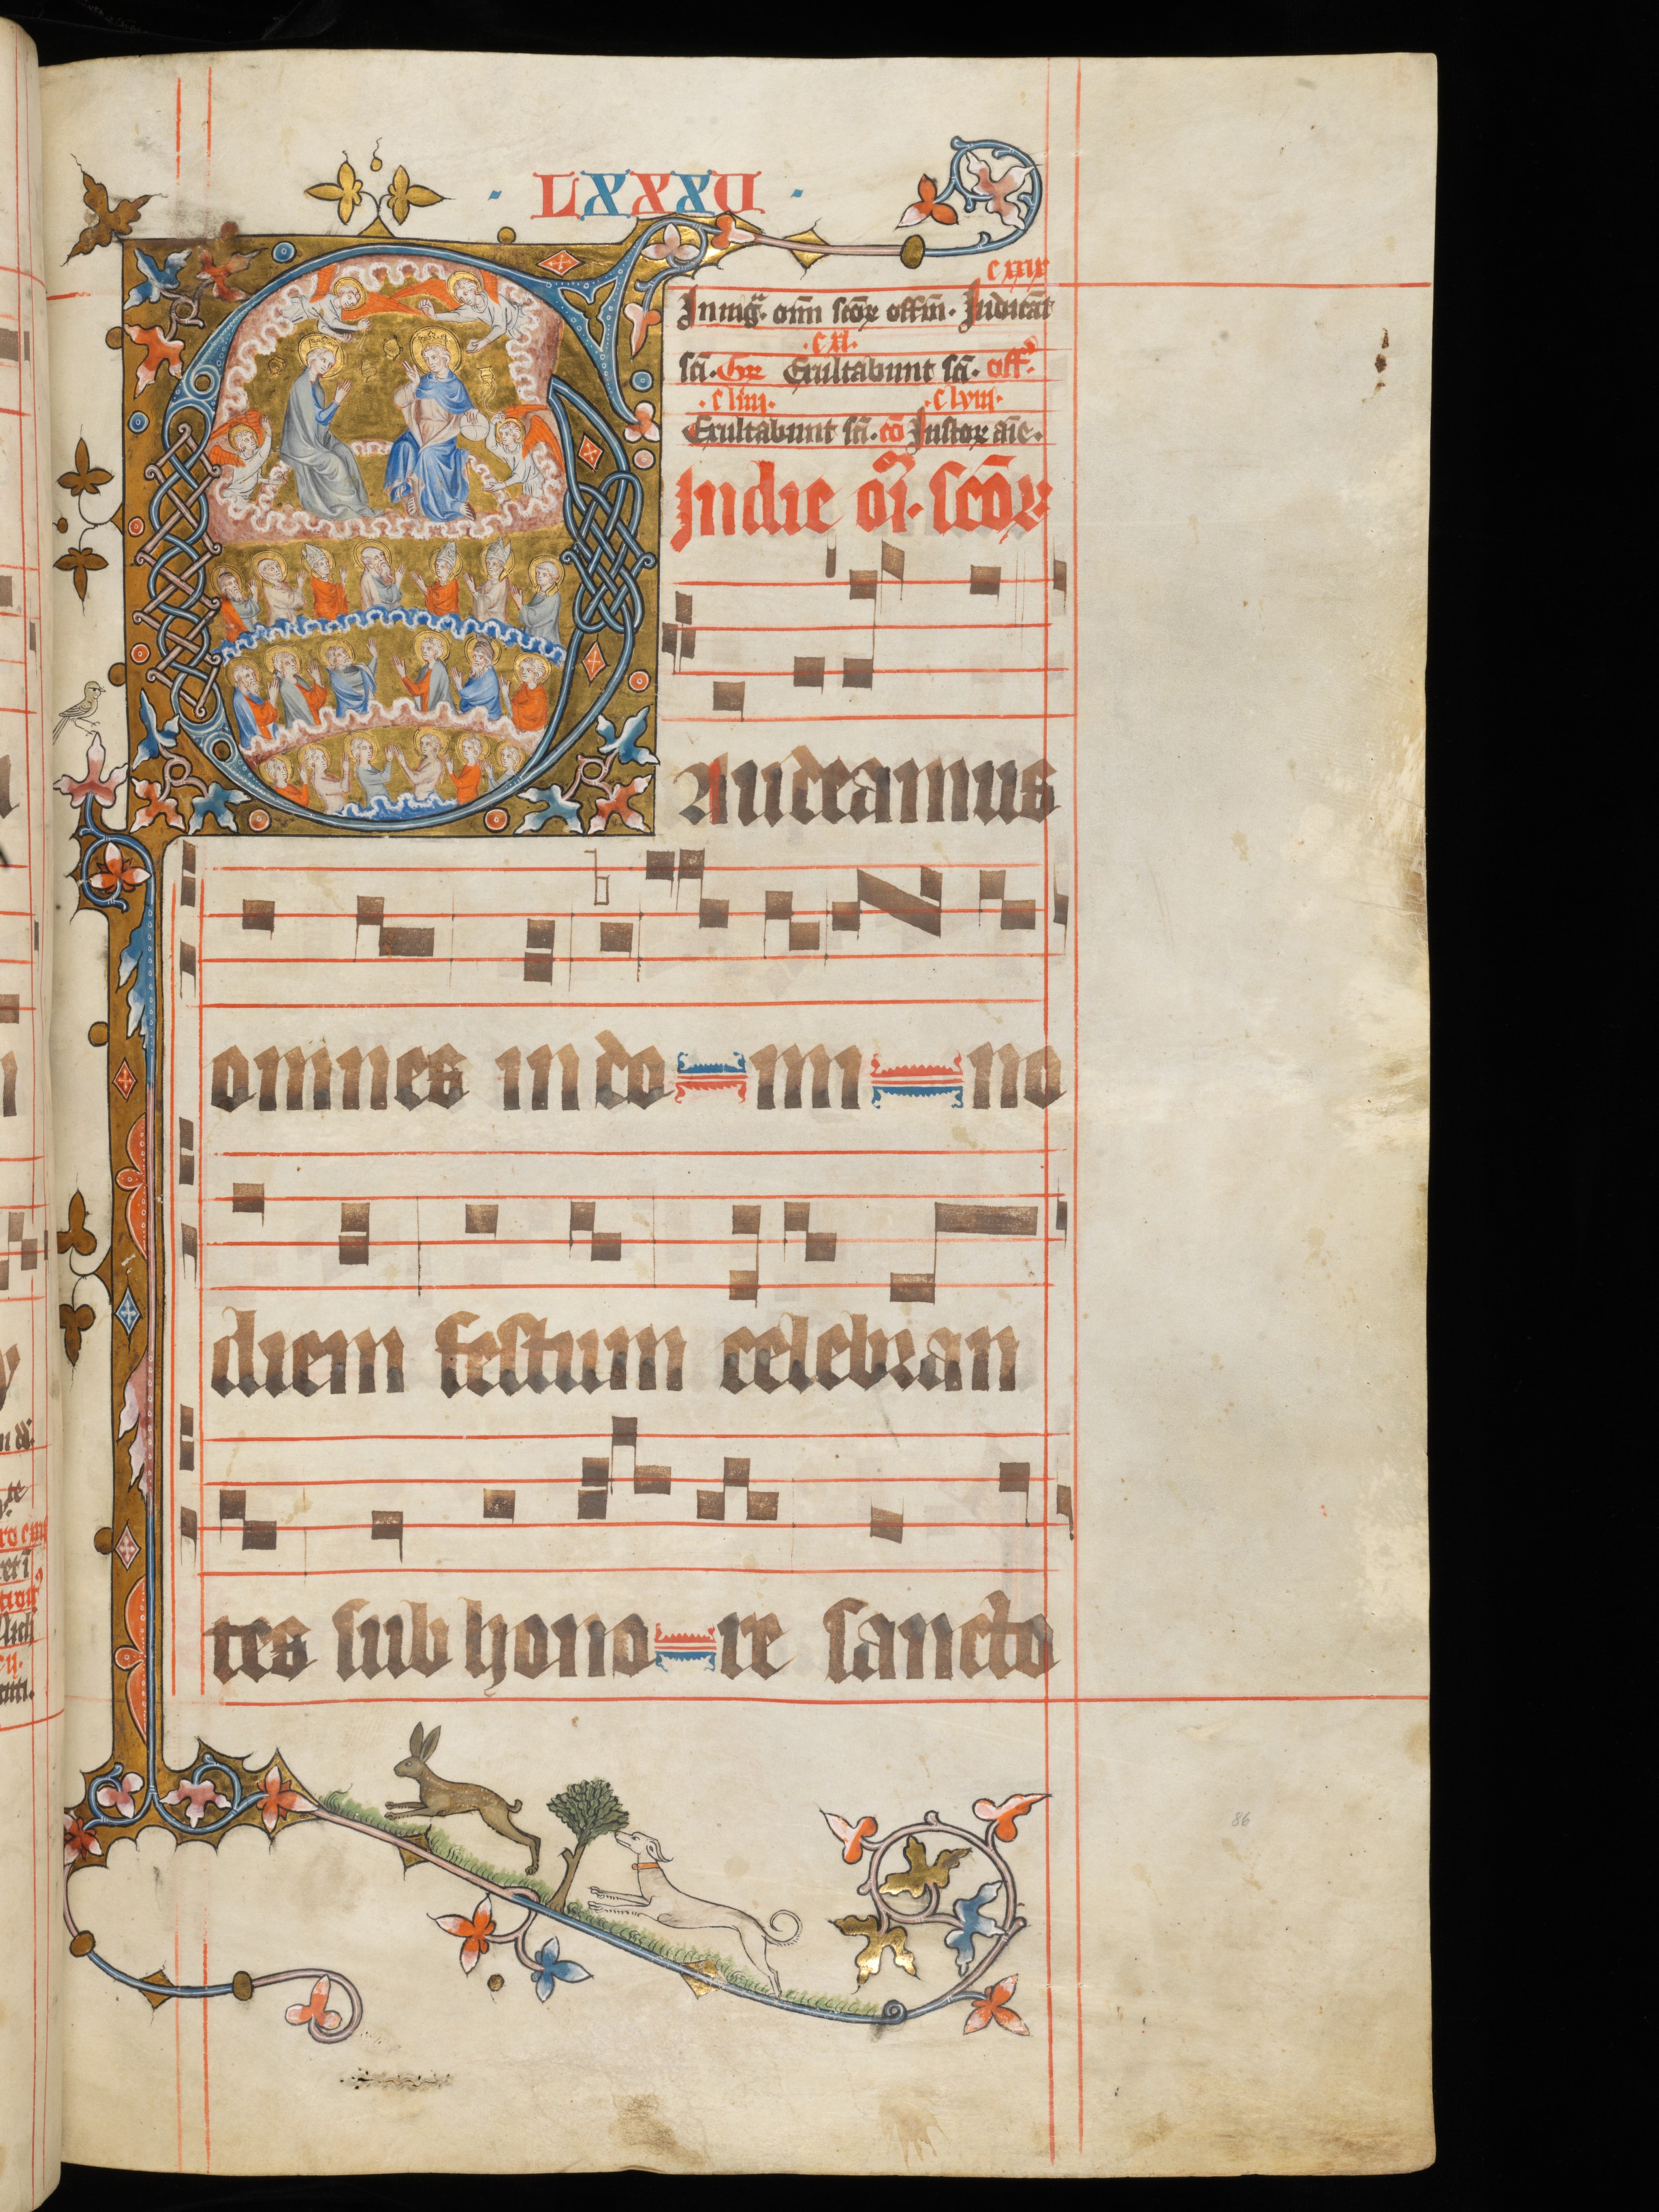 · LXXXV ·
In uig̃. om̃ scõꝝ offm̃. Iudicãt
scĩ. Gꝝ Exultabunt scĩ. off.
·c xl·
·c liiij· ·c lviij·
Exultabunt scĩ. cõ Iustoꝝ aĩe.
In die oĩ. scõꝝ
Gaudeamus
omnes in do mi no
diem festum celebran
tes sub hono re sancto
86